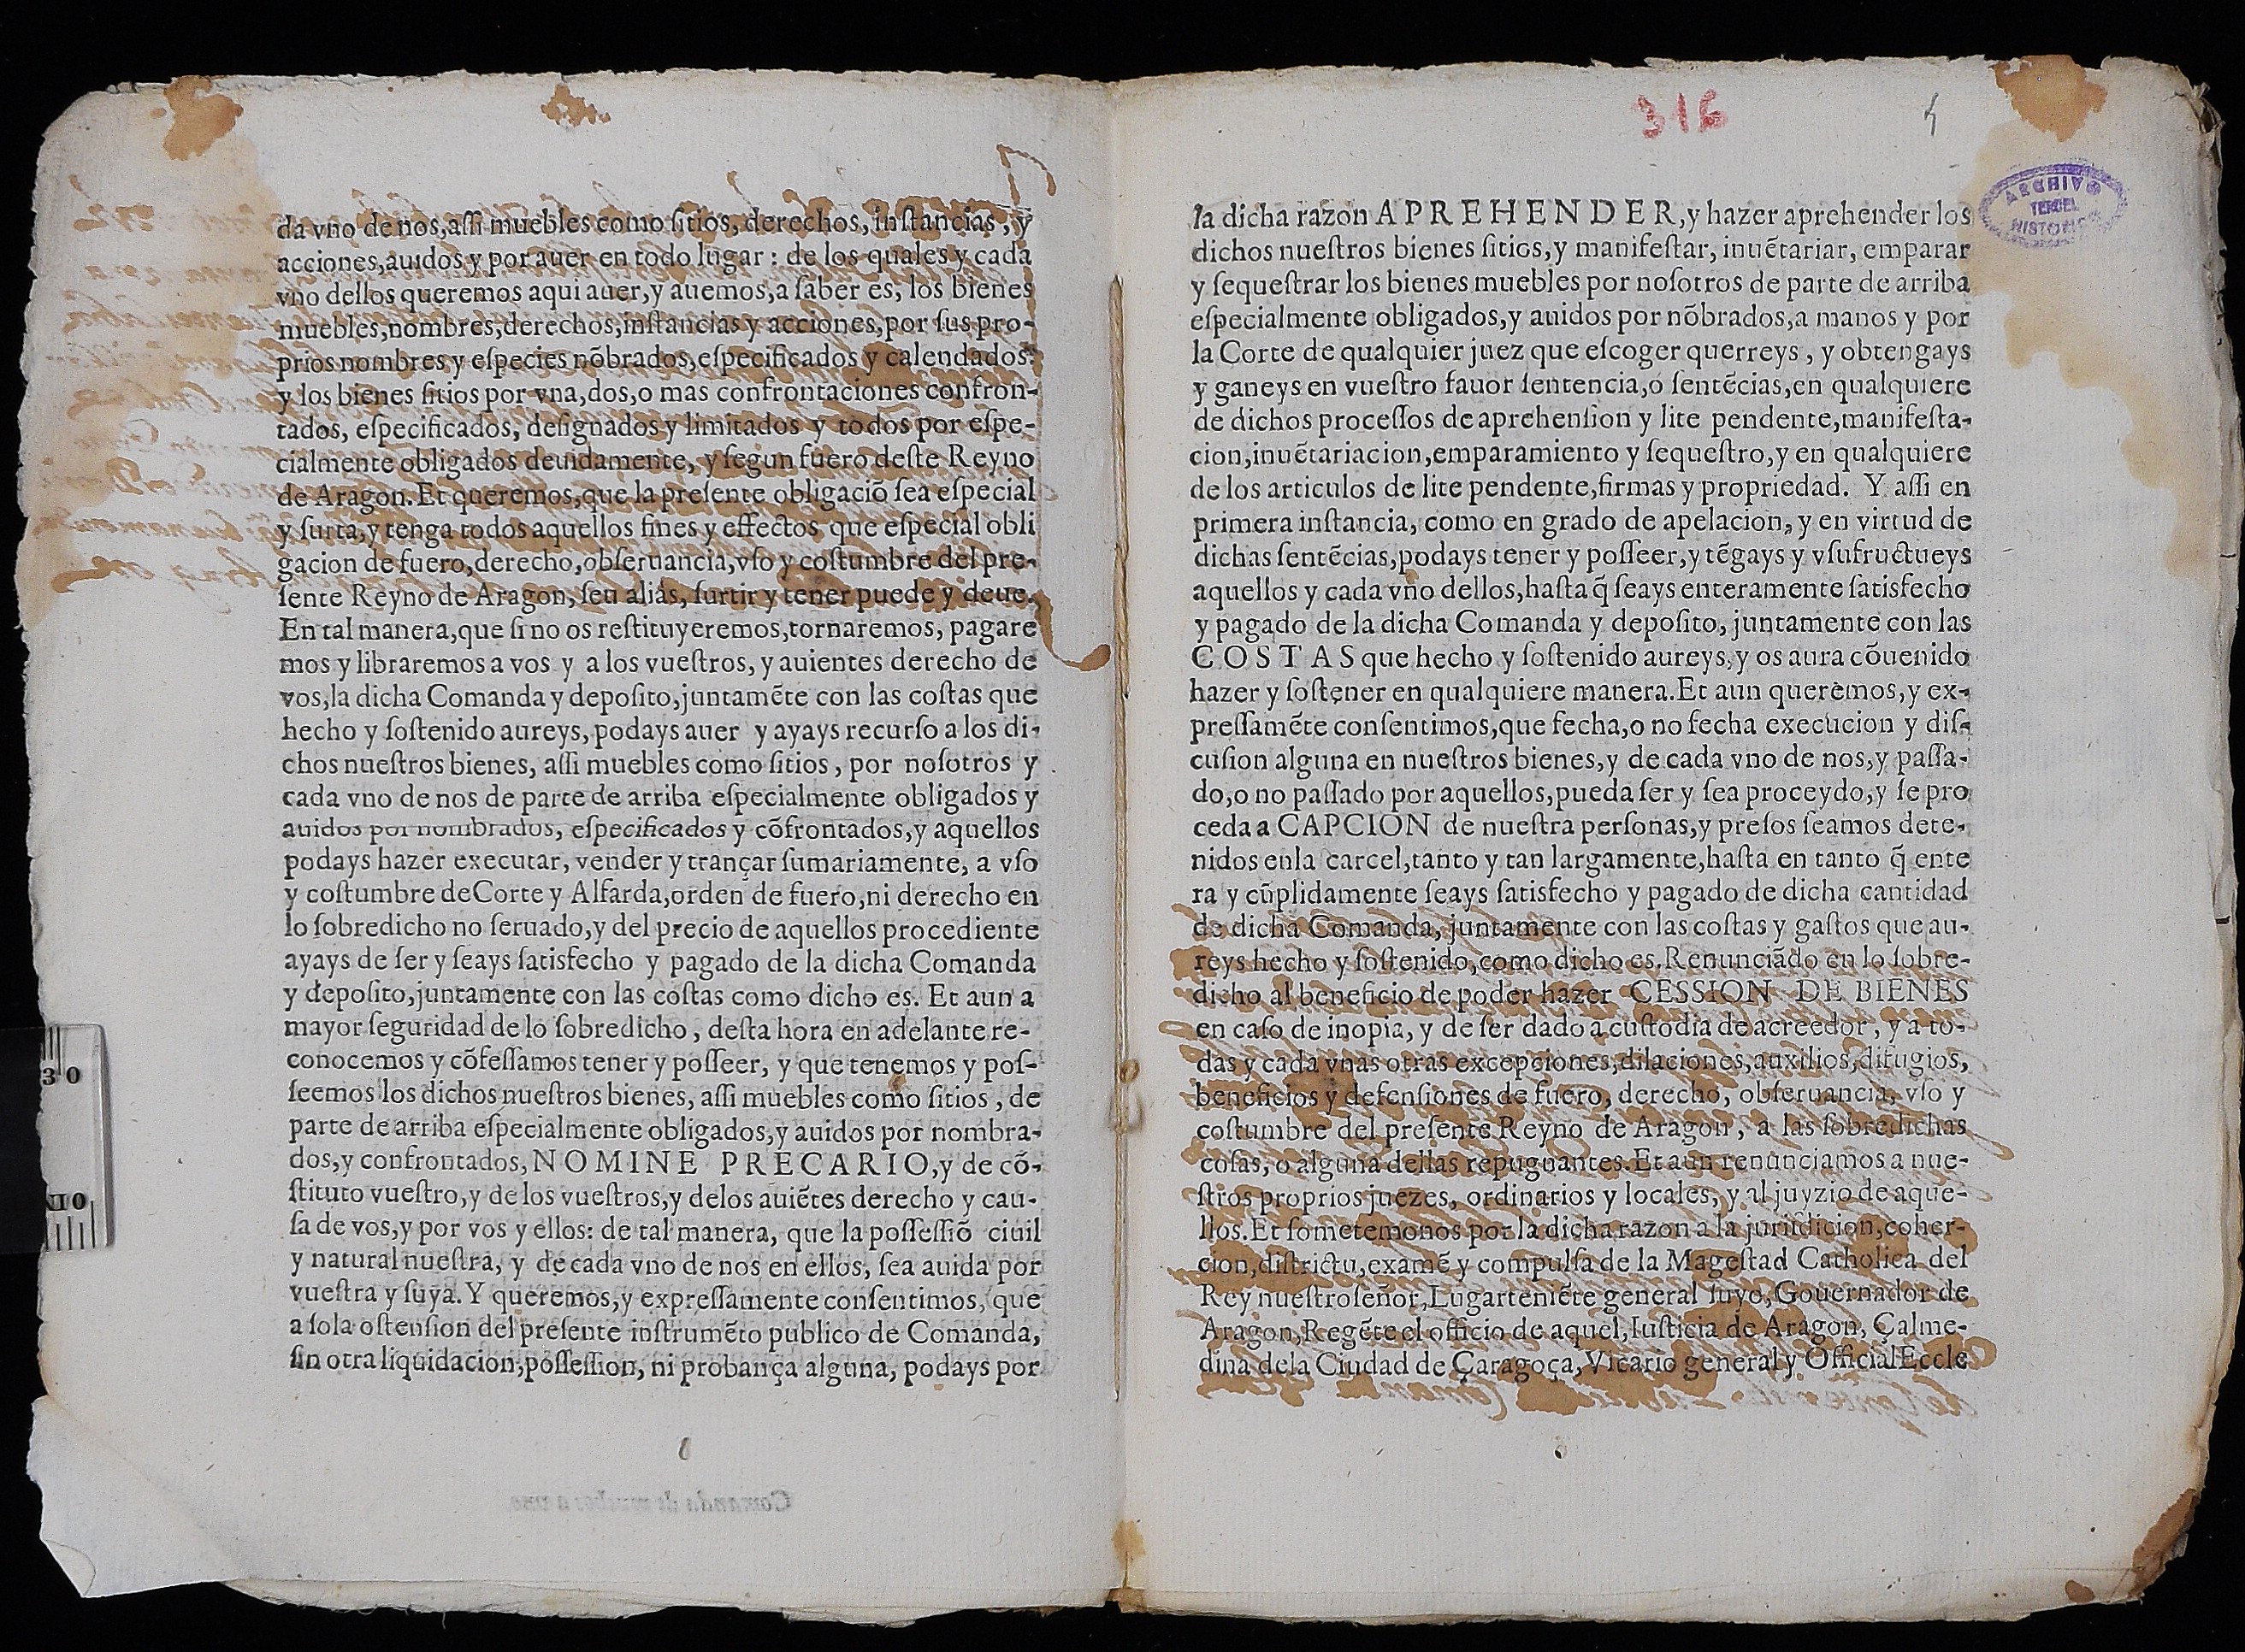 da vno de nos,aſsi muebles como ſitios, derechos, inſtancias, y
acciones,auidos y por auer en todo lugar : de los quales y cada
vno dellos queremos aqui auer,y auemos,a ſaber es, los bienes
muebles,nombres,derechos,inſtancias y acciones,por ſus pro-
prios nombres y eſpecies nõbrados,eſpecificados y calendados:
y los bienes ſitios por vna,dos,o mas confrontaciones confron-
tados, eſpecificados, deſignados y limitados y todos por eſpe-
cialmente obligados deuidamente, y ſegun fuero deſte Reyno
de Aragon.Et queremos,que la preſente obligaciõ ſea eſpecial
y ſurta,y tenga todos aquellos fines y effectos que eſpecial obli
gacion de fuero,derecho,obſeruancia,vſo y coſtumbre del pre-
ſente Reyno de Aragon, ſeu aliâs, ſurtir y tener puede y deue.
En tal manera,que ſi no os reſtituyeremos,tornaremos, pagare
mos y libraremos a vos y a los vueſtros, y auientes derecho de
vos,la dicha Comanda y depoſito,juntamẽte con las coſtas que
hecho y ſoſtenido aureys, podays auer y ayays recurſo a los di-
chos nueſtros bienes, aſsi muebles como ſitios , por noſotros y
cada vno de nos de parte de arriba eſpecialmente obligados y
auidos por nombrados, eſpecificados y cõfrontados,y aquellos
podays hazer executar, vender y trançar ſumariamente, a vſo
y coſtumbre deCorte y Alfarda,orden de fuero,ni derecho en
lo ſobredicho no ſeruado,y del precio de aquellos procediente
ayays de ſer y ſeays ſatisfecho y pagado de la dicha Comanda
y depoſito,juntamente con las coſtas como dicho es. Et aun a
mayor ſeguridad de lo ſobredicho , deſta hora en adelante re-
conocemos y cõfeſſamos tener y poſſeer, y que tenemos y poſ-
ſeemos los dichos nueſtros bienes, aſsi muebles como ſitios , de
parte de arriba eſpecialmente obligados,y auidos por nombra-
dos,y confrontados, NOMINE PRECARIO,y de cõ-
ſtituto vueſtro,y de los vueſtros,y delos auiẽtes derecho y cau-
ſa de vos,y por vos y ellos: de tal manera, que la poſſeſsiõ ciuil
y natural nueſtra, y de cada vno de nos en ellos, ſea auida por
vueſtra y ſuya. Y queremos,y expreſſamente conſentimos, que
a ſola oſtenſion del preſente inſtrumẽto publico de Comanda,
ſin otra liquidacion,poſſeſsion, ni probança alguna, podays por
316
ARCHIVO
TERUEL
HISTORICO
la dicha razon APREHENDER,y hazer aprehender los
dichos nueſtros bienes ſitios,y manifeſtar, inuẽtariar, emparar
y ſequeſtrar los bienes muebles por noſotros de parte de arriba
eſpecialmente obligados,y auidos por nõbrados,a manos y por
la Corte de qualquier juez que eſcoger querreys , y obtengays
y ganeys en vueſtro fauor ſentencia,o ſentẽcias,en qualquiere
de dichos proceſſos de aprehenſion y lite pendente,manifeſta-
cion,inuẽtariacion,emparamiento y ſequeſtro,y en qualquiere
de los articulos de lite pendente,firmas y propriedad. Y aſsi en
primera inſtancia, como en grado de apelacion, y en virtud de
dichas ſentẽcias,podays tener y poſſeer,y tẽgays y vſufructueys
aquellos y cada vno dellos,haſta q̃ ſeays enteramente ſatisfecho
y pagado de la dicha Comanda y depoſito, juntamente con las
COSTAS que hecho y ſoſtenido aureys,y os aura cõuenido
hazer y ſoſtener en qualquiere manera.Et aun queremos,y ex-
preſſamẽte conſentimos,que fecha,o no fecha execucion y diſ-
cuſion alguna en nueſtros bienes,y de cada vno de nos,y paſſa-
do,o no paſſado por aquellos,pueda ſer y ſea proceydo,y ſe pro
ceda a CAPCION de nueſtra perſonas,y preſos ſeamos dete-
nidos enla carcel,tanto y tan largamente,haſta en tanto q̃ ente
ra y cũplidamente ſeays ſatisfecho y pagado de dicha cantidad
de dicha Comanda, juntamente con las coſtas y gaſtos que au-
reys hecho y ſoſtenido,como dicho es.Renunciãdo en lo ſobre-
dicho al beneficio de poder hazer CESSION DE BIENES
en caſo de inopia, y de ſer dado a cuſtodia de acreedor, y a to-
das y cada vnas otras excepciones,dilaciones,auxilios,difugios,
beneficios y defenſiones de fuero, derecho, obſeruancia, vſo y
coſtumbre del preſente Reyno de Aragon , a las ſobredichas
coſas, o alguna dellas repugnantes.Et aun renunciamos a nue-
ſtros proprios juezes, ordinarios y locales, y al juyzio de aque-
llos.Et ſometemonos por la dicha razon a la juriſdicion,coher-
cion,diſtrictu,examẽ y compulſa de la Mageſtad Catholica del
Rey nueſtro ſeñor,Lugarteniẽte general ſuyo,Gouernador de
Aragon,Regẽte el officio de aquel,Iuſticia de Aragon, Çalme-
dina dela Ciudad de Çaragoça, Vicario general y Official Eccle